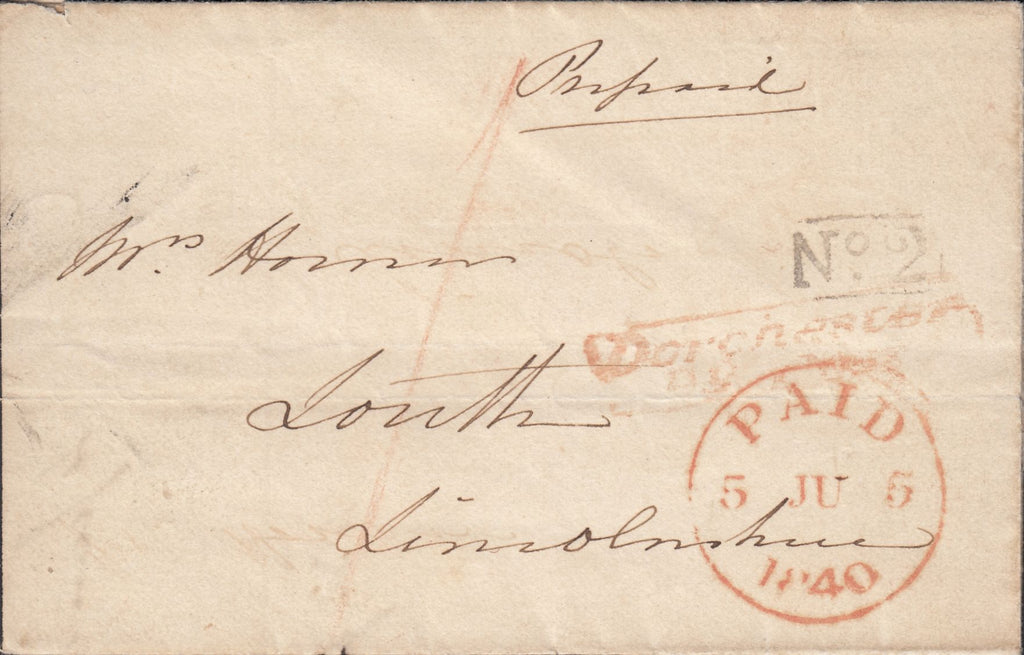 Prepaid
Mrs. Horner
No. 2
Dorchester
Louth
PAID
5 JU 5
1840
Lincolnshire